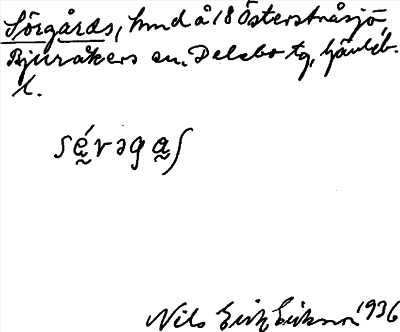 Sörgårds, hmd å 18 Österstråsjö,
Bjuråkers sn. Delsbo tg, Gävleb.
l.
sérəgaʃ
Nils Erik Eriksson 1936